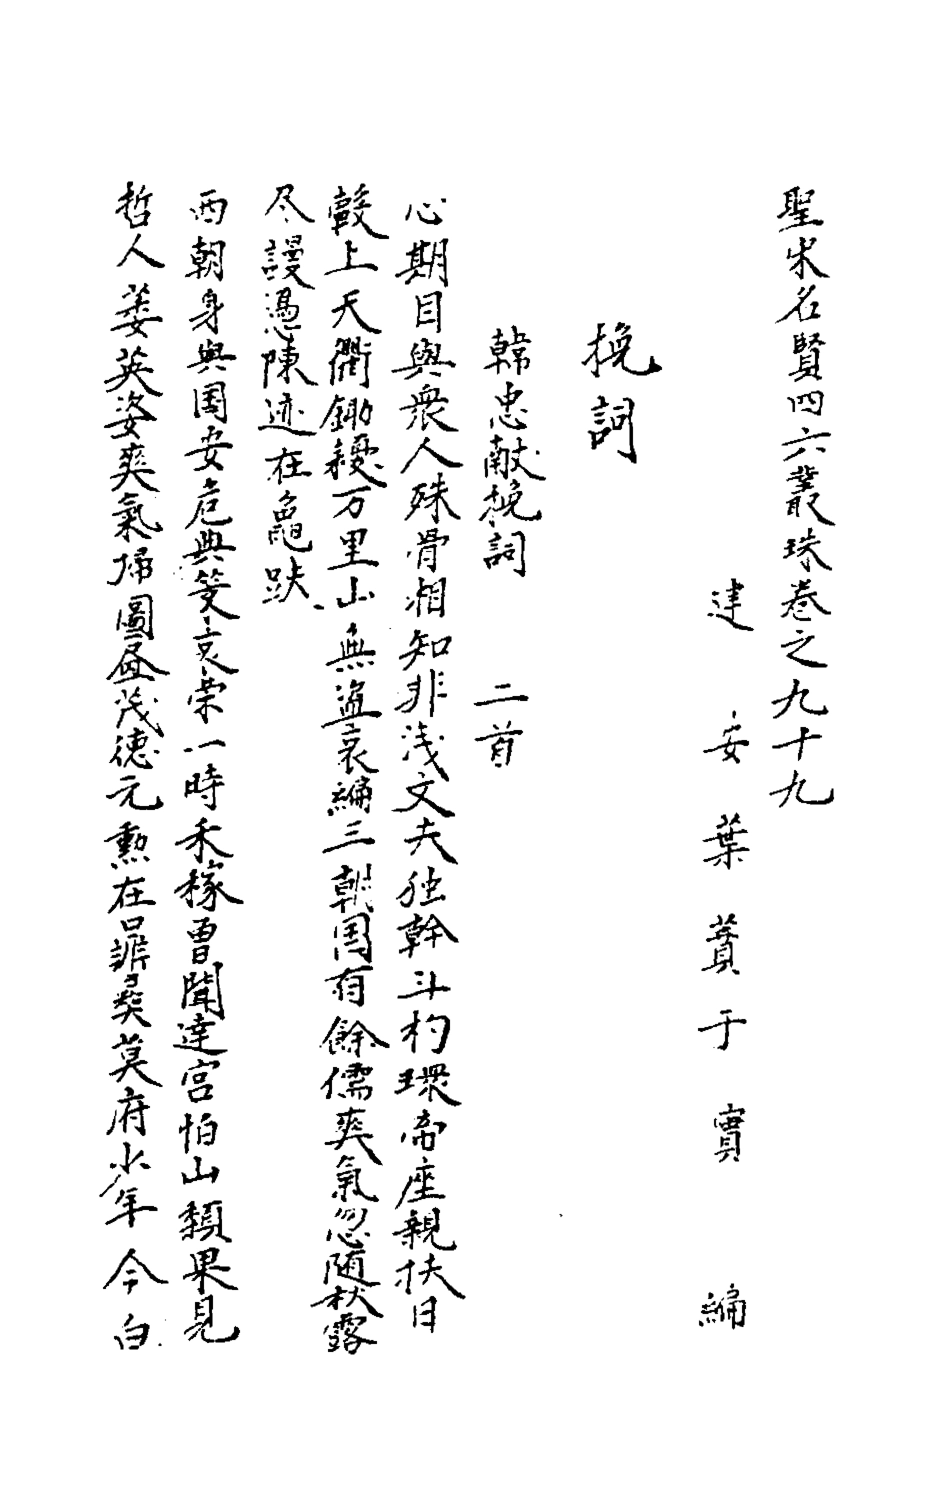 聖宋名賢四六叢珠卷之九十九
建安葉蕡子實編
挽詞
韓忠獻挽詞 二首
心期目與衆人殊骨相知非浅丈夫独幹斗杓環帝座親扶日
轂上天衢鋤耰万里山無盗哀編三朝国有餘儒爽氣忽随秋露
尽謾憑陳迹在龜趺
两朝身與国安危典䇿哀荣一時禾稼曽聞達官怕山頹果見
哲人萎英姿爽氣帰圖畫茂德元勲在鼎彛莫府少年今白